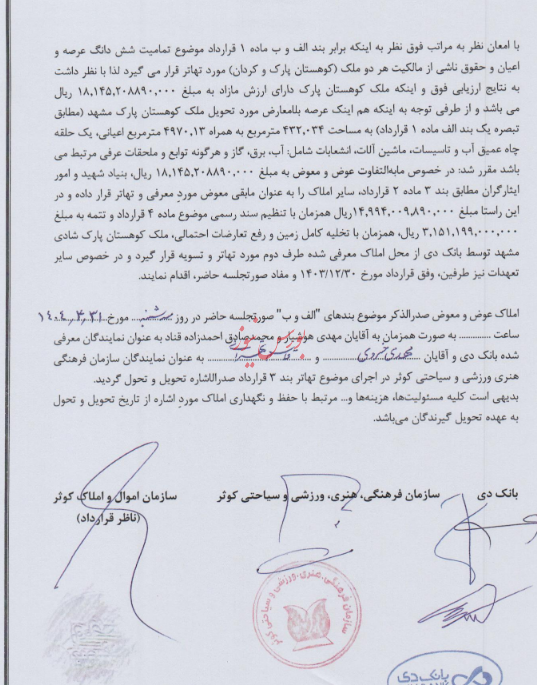 با امعان نظر به مراتب فوق نظر به اینکه برابر بند الف و ب ماده ۱ قرارداد موضوع تمامیت شش دانگ عرصه و
اعیان و حقوق ناشی از مالکیت هر دو ملک (کوهستان پارک و کردان) مورد تهاتر قرار می گیرد لذا با نظر داشت
به نتایج ارزیابی فوق و اینکه ملک کوهستان پارک دارای ارزش مازاد به مبلغ ۱۸,۱۴۵,۲۰۸۸۹۰,۰۰۰ ریال
می باشد و از طرفی توجه به اینکه هم اینک عرصه بلامعارض مورد تحویل ملک کوهستان پارک مشهد (مطابق
تبصره یک بند الف ماده ۱ قرارداد) به مساحت ۴۳۲,۰۳۴ مترمربع به همراه ۴۹۷۰,۱۳ مترمربع اعیانی، یک حلقه
چاه عمیق آب و تاسیسات، ماشین آلات، انشعابات شامل: آب، برق، گاز و هرگونه توابع و ملحقات عرفی مرتبط می
باشد مقرر شد: در خصوص مابه‌التفاوت عوض و معوض به مبلغ ۱۸,۱۴۵,۲۰۸۸۹۰,۰۰۰ ریال، بنیاد شهید و امور
ایثارگران مطابق بند ۳ ماده ۲ قرارداد، سایر املاک را به عنوان مابقی معوض مورد معرفی و تهاتر قرار داده و در
این راستا مبلغ ۱۴,۹۹۴,۰۰۹,۸۹۰,۰۰۰ریال همزمان با تنظیم سند رسمی موضوع ماده ۴ قرارداد و تتمه به مبلغ
۳,۱۵۱,۱۹۹,۰۰۰,۰۰۰ ریال، همزمان با تخلیه کامل زمین و رفع تعارضات احتمالی، ملک کوهستان پارک شادی
مشهد توسط بانک دی از محل املاک معرفی شده طرف دوم مورد تهاتر و تسویه قرار گیرد و در خصوص سایر
تعهدات نیز طرفین، وفق قرارداد مورخ ۱۴۰۳/۱۲/۳۰ و مفاد صورتجلسه حاضر، اقدام نمایند.
املاک عوض و معوض صدرالذکر موضوع بندهای "الف و ب" صورتجلسه حاضر در روز سه شنبه مورخ ۱۴۰۴.۴.۳۱
ساعت ............ به صورت همزمان به آقایان مهدی هوشیار و محمدصادق احمدزاده قناد به عنوان نمایندگان معرفی
شده بانک دی و آقایان و به عنوان نمایندگان سازمان فرهنگی
هنری ورزشی و سیاحتی کوثر در اجرای موضوع تهاتر بند ۳ قرارداد صدرالاشاره تحویل و تحول گردید.
بدیهی است کلیه مسئولیت‌ها، هزینه‌ها و... مرتبط با حفظ و نگهداری املاک مورد اشاره از تاریخ تحویل و تحول
به عهده تحویل گیرندگان می‌باشد.
بانک دی سازمان فرهنگی، هنری، ورزشی و سیاحتی کوثر سازمان اموال و املاک کوثر
(ناظر قرارداد)
سازمان فرهنگی، هنری، ورزشی و سیاحتی کوثر
بانک دی